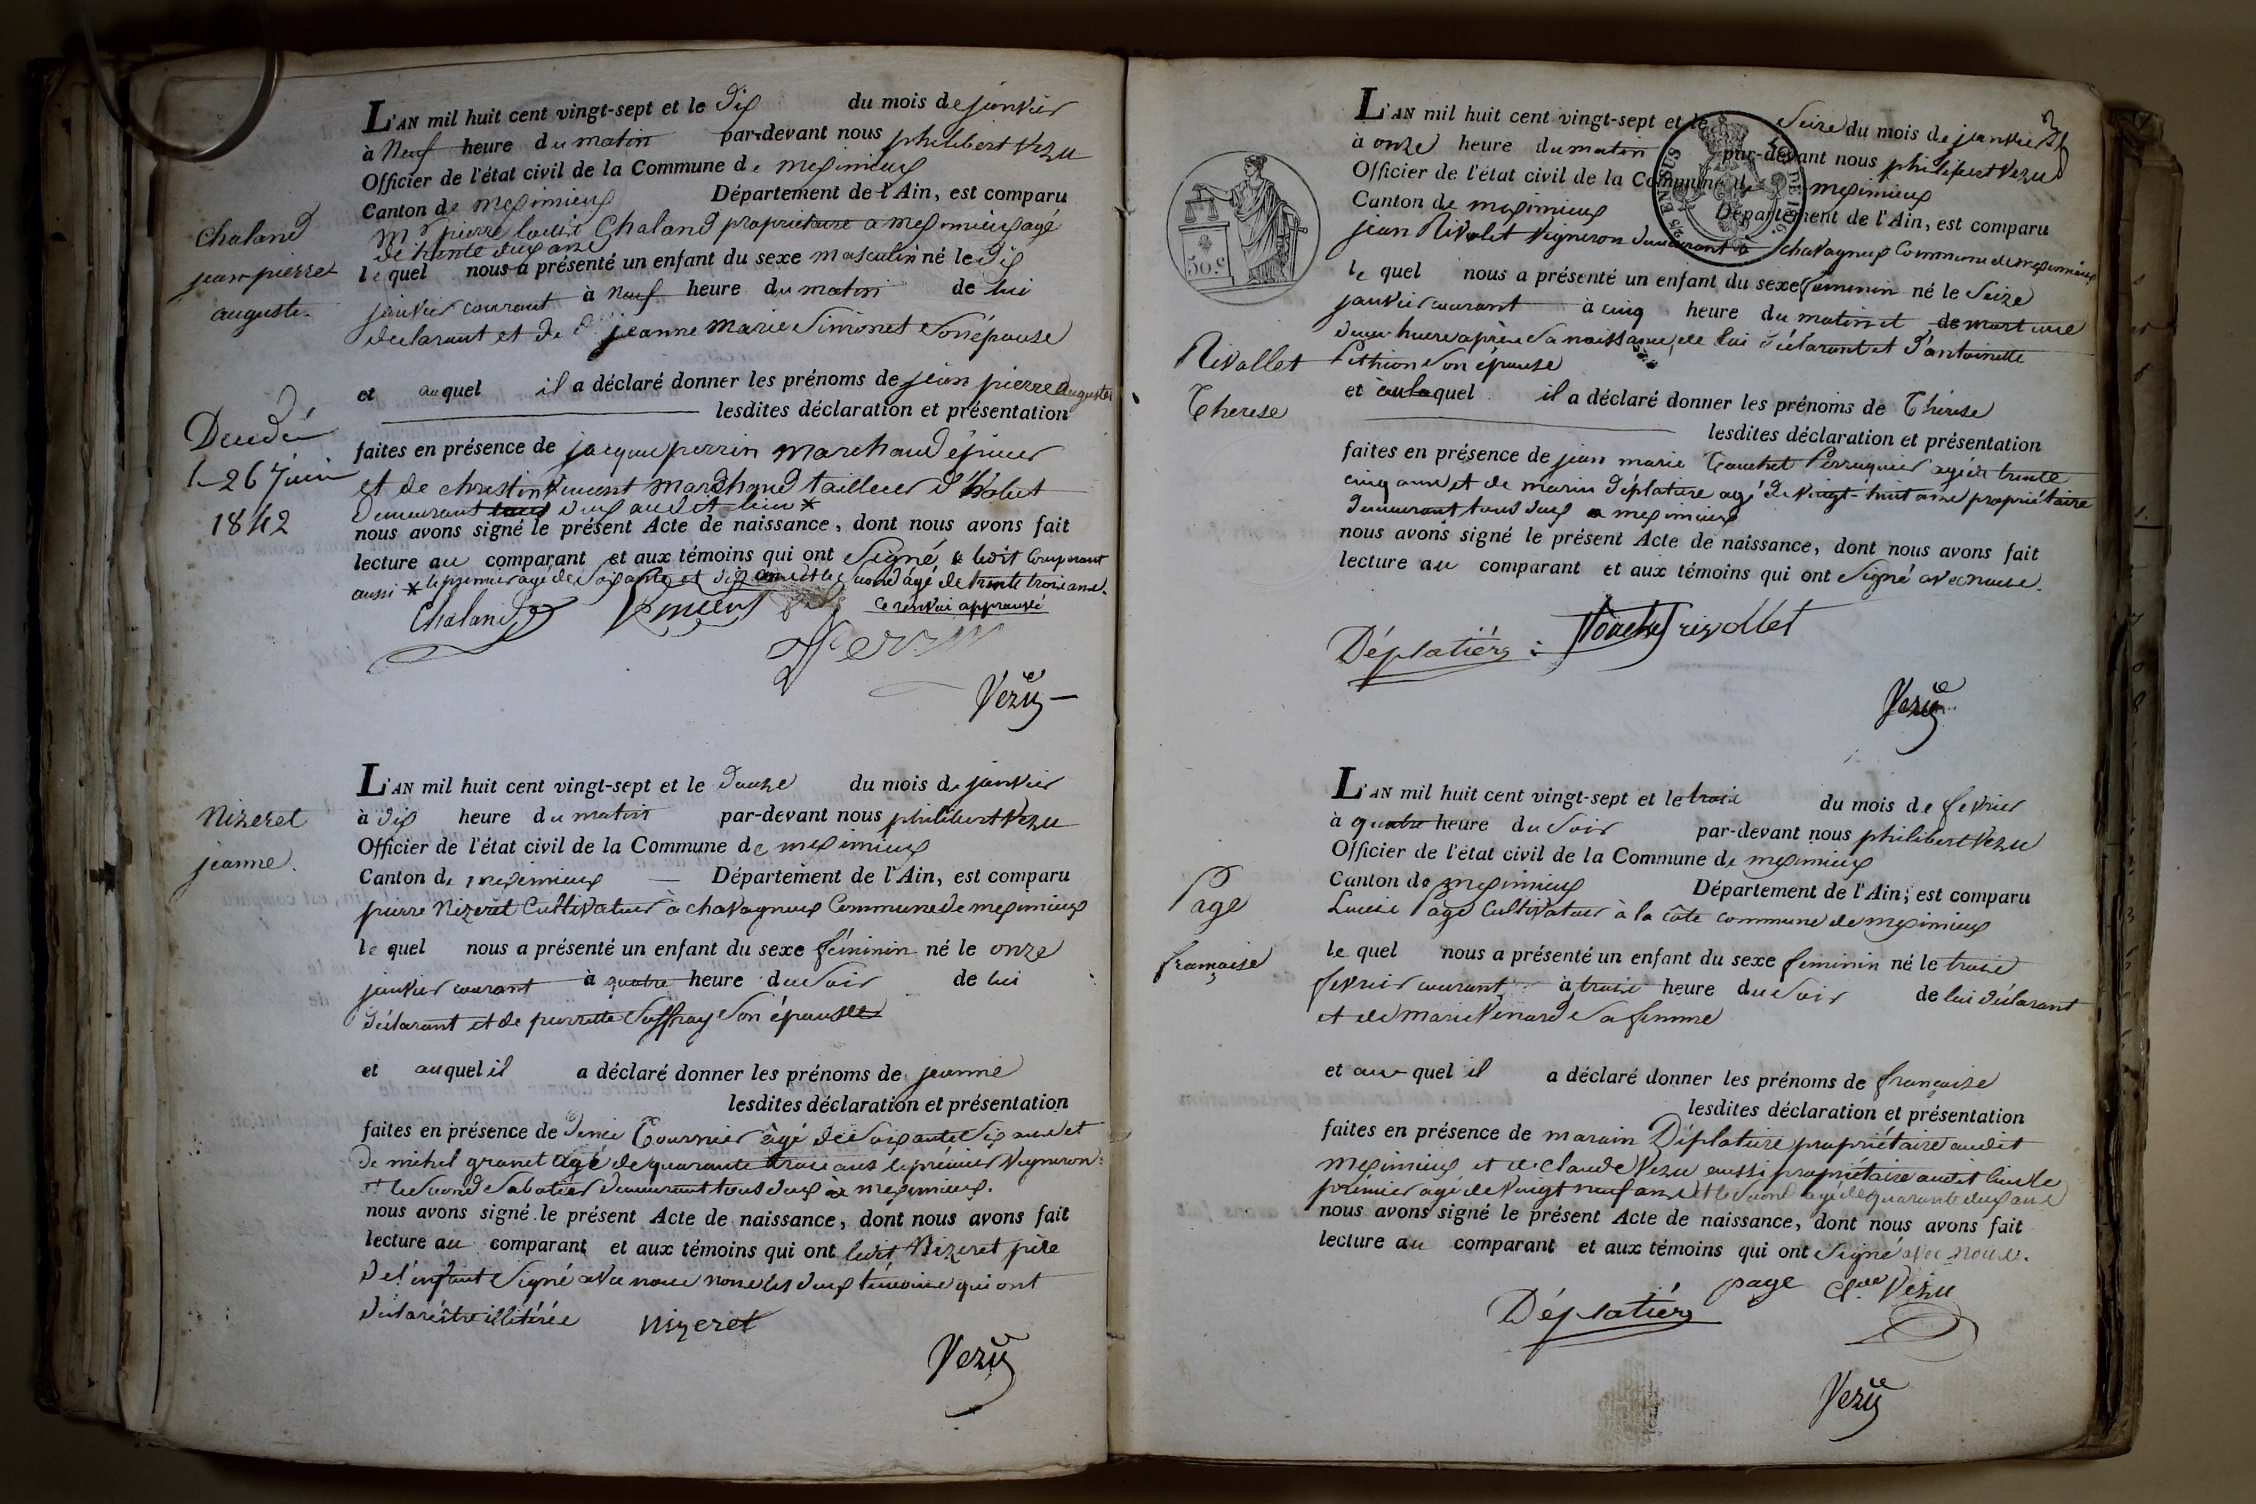 L'AN mil huit cent vingt-sept et le dix du mois de janvier
à Neuf heure du matin par-devant nous philibert Vezu
Officier de l'état civil de la Commune de meximieux
Canton de meximieux Département de l'Ain, est comparu
Mr pierre louis Chaland propriétaire a meximieux agé
de trente deux ans
le quel nous a présenté un enfant du sexe masculin né le dix
janvier courant à Neuf heure du matin de lui
declarant et de jeanne Marie Simonet son épouse
et auquel il a déclaré donner les prénoms de jean pierre auguste
lesdites déclaration et présentation
faites en présence de jacque perrin marchand épicier
et de Vincent marchand tailleur d'habit
demeurant tous deux audit lieu *
nous avons signé le présent Acte de naissance, dont nous avons fait
lecture au comparant et aux témoins qui ont signé, & ledit Comparant
aussi * le premier agé de soixante et dix ans et le second agé de trente trois ans.
ce renvoi approuvé
Chaland Vincent
Perrin
Vezu
Chaland
jean pierre
auguste.
Décédé
le 26 Juin
1842
L'AN mil huit cent vingt-sept et le douze du mois de janvier
à dix heure du matin par-devant nous philibert Vezu
Officier de l'état civil de la Commune de meximieux
Canton de meximieux Département de l'Ain, est comparu
pierre Nizeret Cultivateur à chavagneux Commune de meximieux
le quel nous a présenté un enfant du sexe féminin né le onze
janvier courant à quatre heure du soir de lui
déclarant et de pierrette Suffray son épouse
et auquel il a déclaré donner les prénoms de jeanne
lesdites déclaration et présentation
faites en présence de Denis Tournier âgé de soixante six ans et
de michel granet agé de quarante trois ans le prémier Vigneron
et le second Sabotier demeurant tous deux à meximieux.
nous avons signé le présent Acte de naissance, dont nous avons fait
lecture au comparant et aux témoins qui ont ledit Nizeret père
de l'enfant signé avec nous non les deux témoins qui ont
déclaré être illitérés
nizeret
Vezu
Nizeret
jeanne.
L'AN mil huit cent vingt-sept et le Seize du mois de janvier
à onze heure du matin par-devant nous philibert Vezu
Officier de l'état civil de la Commune de meximieux
Canton de meximieux Département de l'Ain, est comparu
jean Rivolet Vigneron demeurant à chavagneux Commune de meximieux
le quel nous a présenté un enfant du sexe feminin né le Seize
janvier courant à cinq heure du matin et de mort une
heure après sa naissance, de lui déclarant et d'antoinette
Pithion son épouse
et quel il a déclaré donner les prénoms de Thérèse
lesdites déclaration et présentation
faites en présence de jean marie Touchet Perruquier agé de trente
cinq ans et de marin déplature agé de vingt-huit ans propriétaire
demeurant tous deux a meximieux
nous avons signé le présent Acte de naissance, dont nous avons fait
lecture au comparant et aux témoins qui ont signé avec nous.
Déplatière Touchet rivollet
Vezu
50.c
Rivollet
Therese
L'AN mil huit cent vingt-sept et le trois du mois de fevrier
à quatre heure du soir par-devant nous philibert Vezu
Officier de l'état civil de la Commune de meximieux
Canton de meximieux Département de l'Ain, est comparu
Page Cultivateur à la côte commune de meximieux
le quel nous a présenté un enfant du sexe feminin né le trois
fevrier courant, à trois heure du soir de lui déclarant
et de marie Venard sa femme
et quel il a déclaré donner les prénoms de françoise
lesdites déclaration et présentation
faites en présence de marain Déplature propriétaire audit
meximieux et de Claude Vezu aussi propriétaire audit lieu le
prémier agé de vingt neuf ans et le second agé de quarante deux ans
nous avons signé le présent Acte de naissance, dont nous avons fait
lecture au comparant et aux témoins qui ont signé avec nous.
Déplatière page Cde Vezu
Vezu
Page
françoise